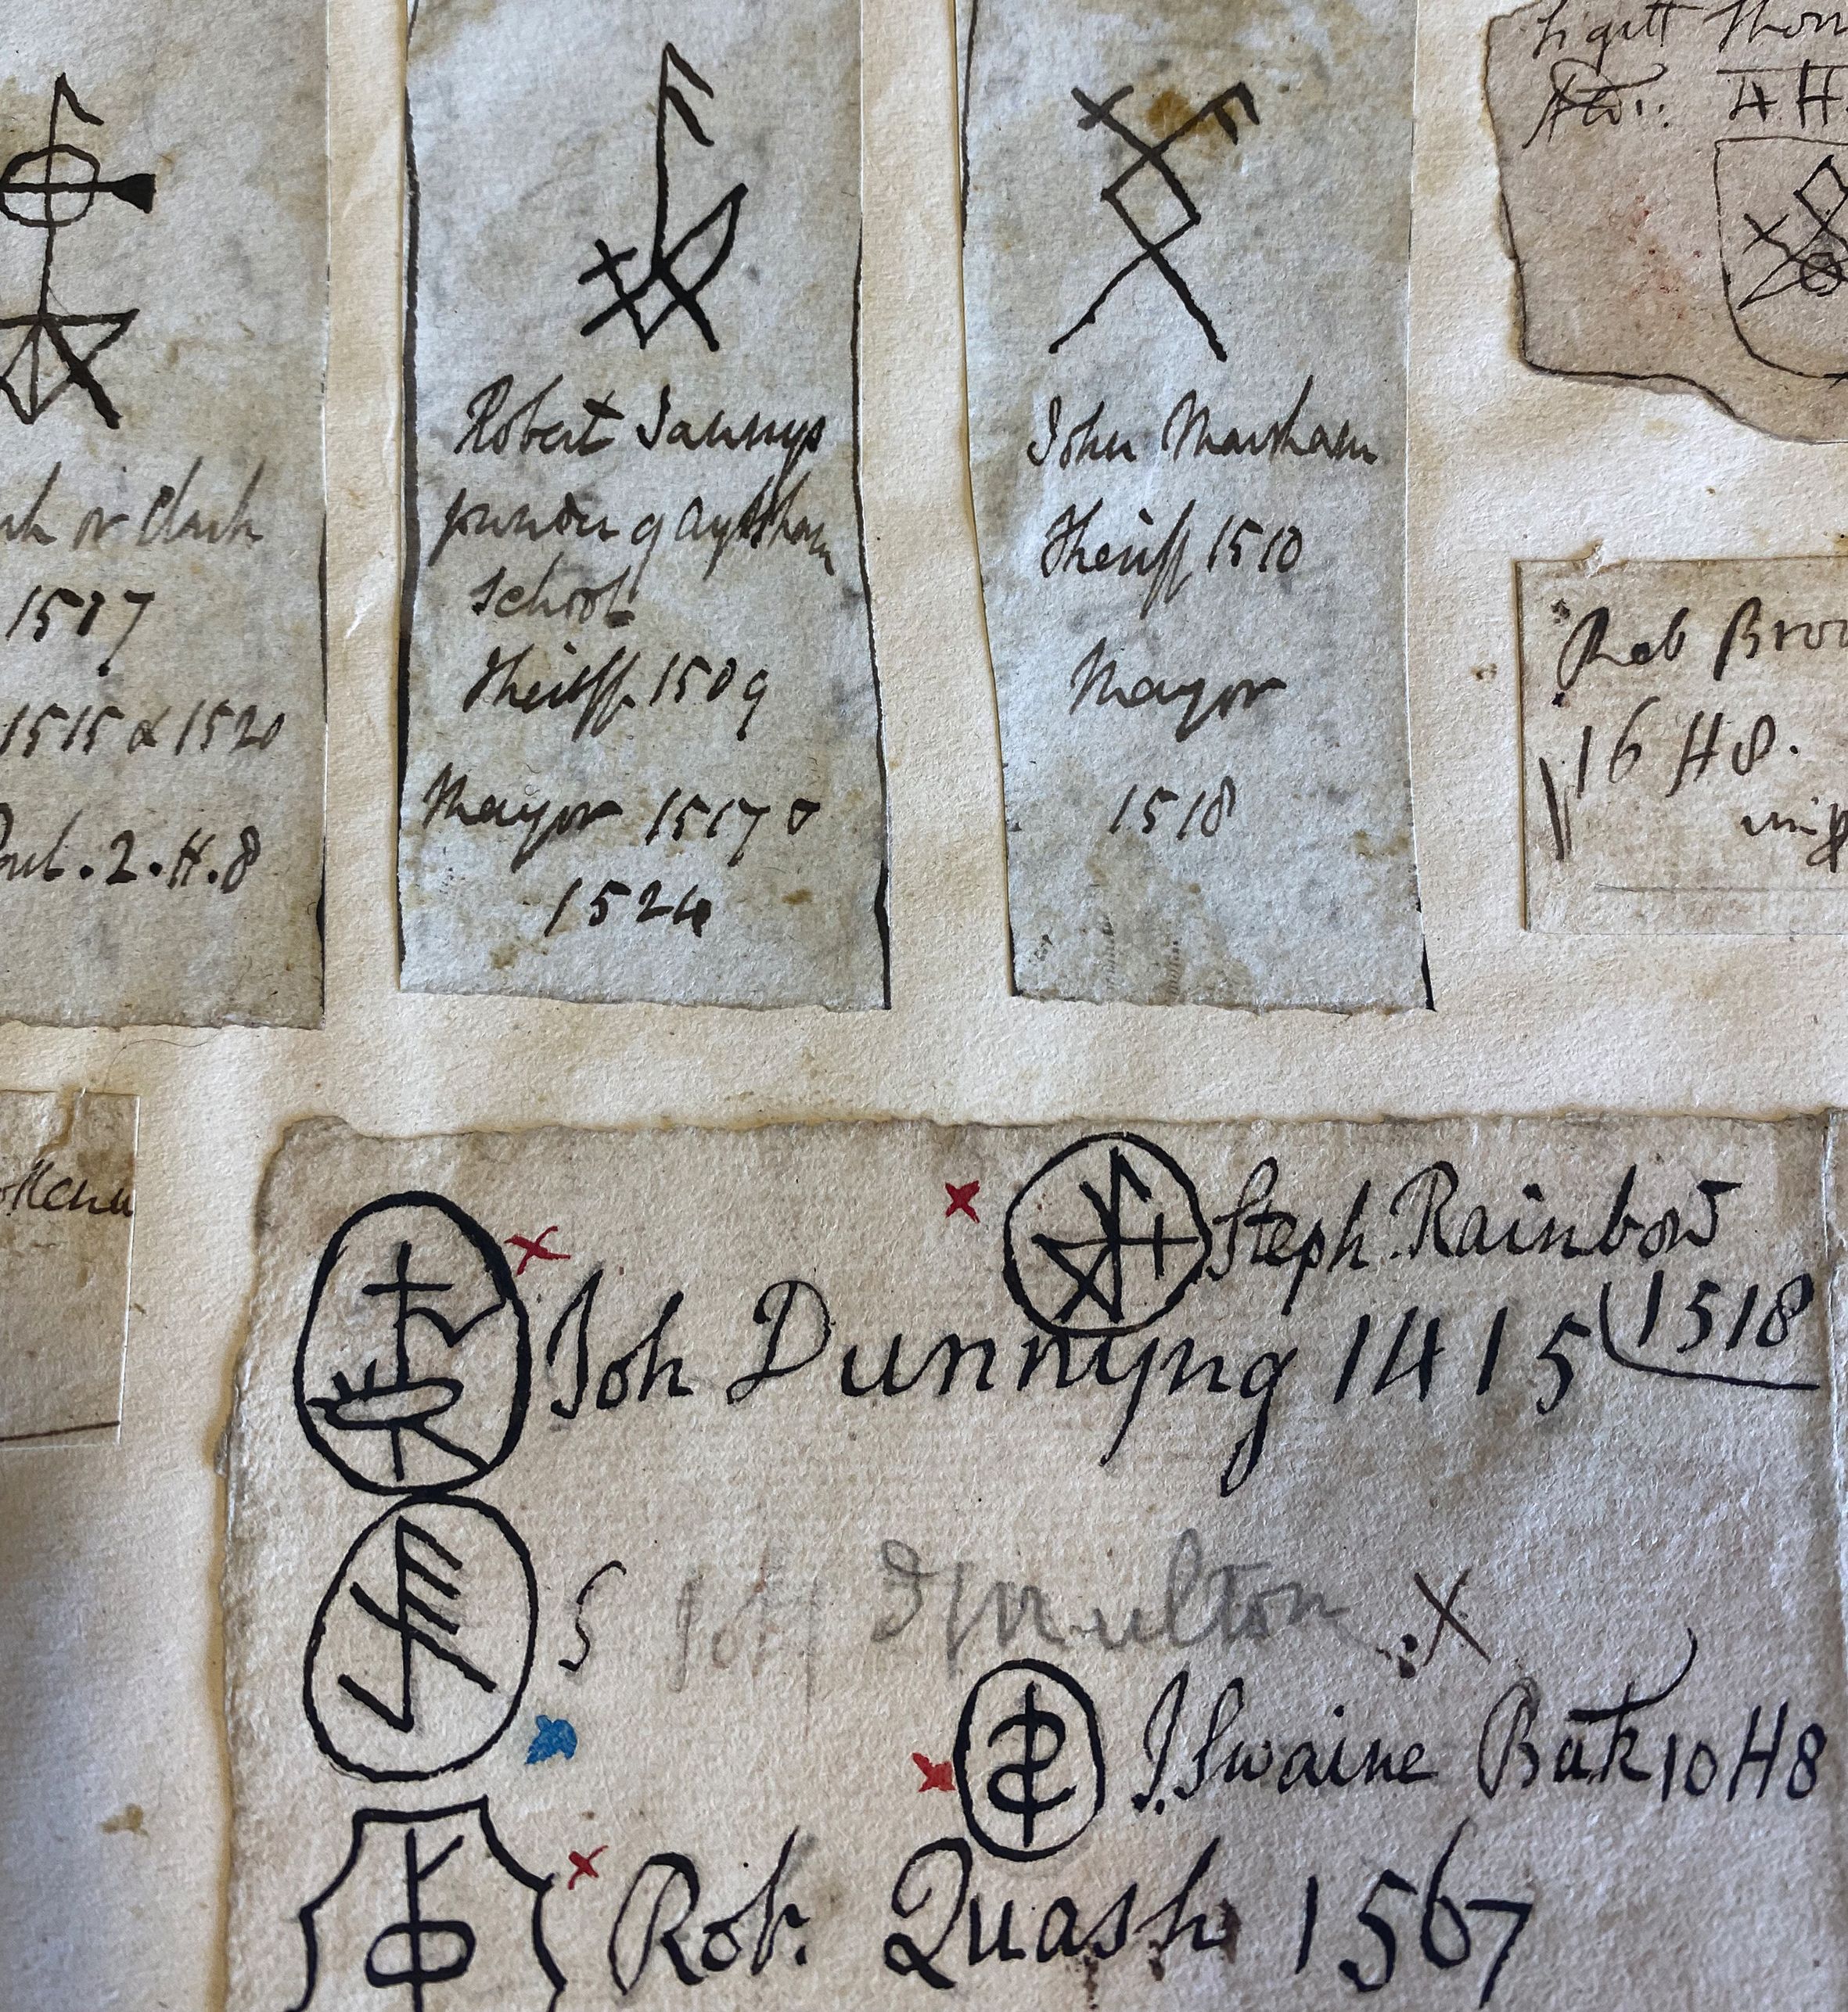 or Clark
1507
1515 & 1520
2.H.8
Robert Jannys
founder of Aylsham
School
Sheriff 1509
Mayor 1517 &
1524
John Marsham
Sheriff 1510
Mayor
1518
Rob Brow
16 H8.
Steph. Rainbow
1518
Joh Dunnyng 1415
S
multon
J. Swaine 10 H8
Rob. Quash 1567